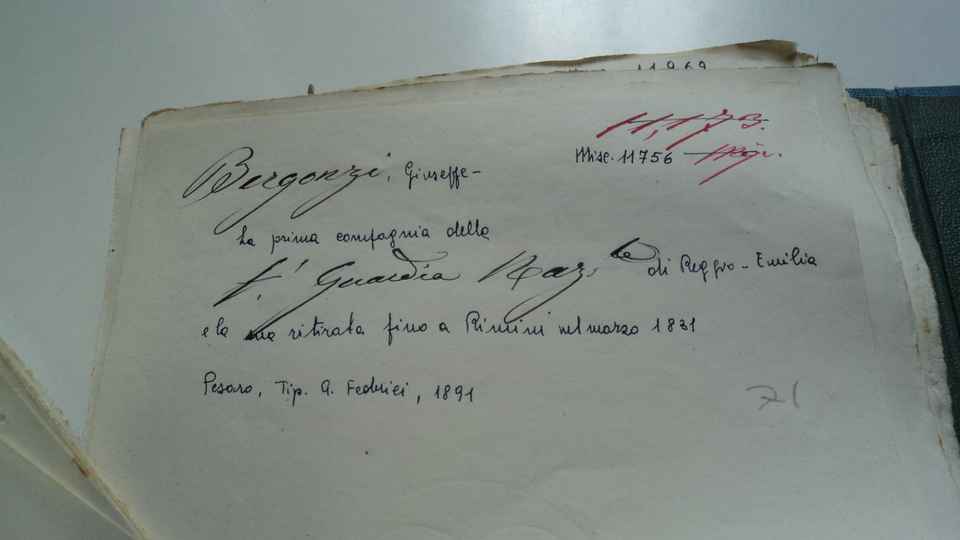 11969
11,173.
Misc. 11756 Misc.
Bergonzi, Giuseppe-
La prima compagnia della
Guardia Naz.le di Reggio-Emilia
e la sua ritirata fino a Rimini nel marzo 1831
Pesaro, Tip. A. Federici, 1891
71